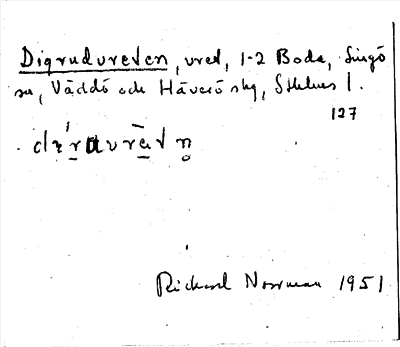 Digrudureten, vret, 1-2 Boda, Singö
sn, Väddö och Häverö skg, Sthlms l.
127
Rickard Norrman 1951